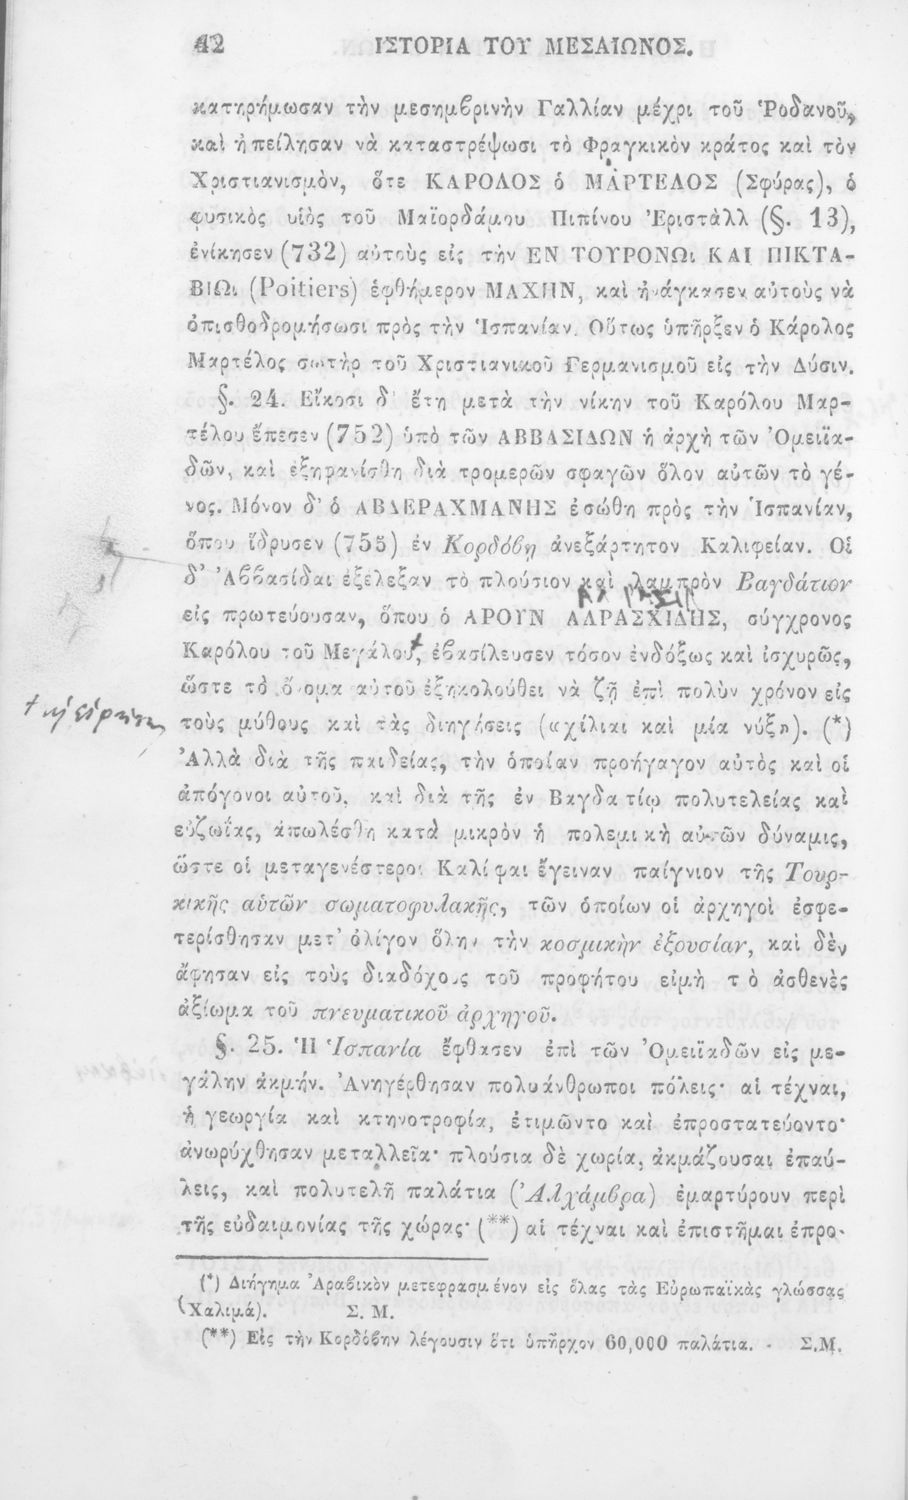 42 ΙΣΤΟΡΙΑ ΤΟΥ ΜΕΣΑΙΩΝΟΣ.
κατηρήμωσαν τὴν μεσημβρινὴν Γαλλίαν μέχρι τοῦ Ῥοδανοῦ,
καὶ ἠπείλησαν νὰ καταστρέψωσι τὸ Φραγκικὸν κράτος καὶ τὸν
Χριστιανισμὸν, ὅτε ΚΑΡΟΛΟΣ ὁ ΜΑΡΤΕΛΟΣ (Σφύρας), ὁ
φυσικὸς υἱὸς τοῦ Μαϊορδάμου Πιπίνου Ἐριστὰλλ (§. 13),
ἐνίκησεν (732) αὐτοὺς εἰς τὴν ΕΝ ΤΟΥΡΟΝΩι ΚΑΙ ΠΙΚΤΑ-
ΒΙΩι (Poitiers) ἑφθήμερον ΜΑΧΗΝ, καὶ ἠνάγκασεν αὐτοὺς νὰ
ὀπισθοδρομήσωσι πρὸς τὴν Ἱσπανίαν. Οὕτως ὑπῆρξεν ὁ Κάρολος
Μαρτέλος σωτὴρ τοῦ Χριστιανικοῦ Γερμανισμοῦ εἰς τὴν Δύσιν.
§. 24. Εἴκοσι δ' ἔτη μετὰ τὴν νίκην τοῦ Καρόλου Μαρ-
τέλου ἔπεσεν (752) ὑπὸ τῶν ΑΒΒΑΣΙΔΩΝ ἡ ἀρχὴ τῶν Ὀμεϊϊα-
δῶν, καὶ ἐξηφανίσθη διὰ τρομερῶν σφαγῶν ὅλον αὐτῶν τὸ γέ-
νος. Μόνον δ' ὁ ΑΒΔΕΡΑΧΜΑΝΗΣ ἐσώθη πρὸς τὴν Ἱσπανίαν,
ὅπου ἵδρυσεν (755) ἐν Κορδόβῃ ἀνεξάρτητον Καλιφείαν. Οἱ
δ' Ἀββασίδαι ἐξέλεξαν τὸ πλούσιον καὶ λαμπρὸν Βαγδάτιον
εἰς πρωτεύουσαν, ὅπου ὁ ΑΡΟΥΝ ΑΛΡΑΣΧΙΔΗΣ, σύγχρονος
Καρόλου τοῦ Μεγάλου, ἐβασίλευσεν τόσον ἐνδόξως καὶ ἰσχυρῶς,
ὥστε τὸ ὄνομα αὐτοῦ ἐξηκολούθει νὰ ζῇ ἐπὶ πολὺν χρόνον εἰς
τοὺς μύθους καὶ τὰς διηγήσεις («χίλιαι καὶ μία νύξ»). (*)
Ἀλλὰ διὰ τῆς παιδείας, τὴν ὁποίαν προήγαγον αὐτὸς καὶ οἱ
ἀπόγονοι αὐτοῦ, καὶ διὰ τῆς ἐν Βαγδατίῳ πολυτελείας καὶ
εὐζωΐας, ἀπωλέσθη κατὰ μικρὸν ἡ πολεμικὴ αὐτῶν δύναμις,
ὥστε οἱ μεταγενέστεροι Καλίφαι ἔγειναν παίγνιον τῆς Τουρ-
κικῆς αὐτῶν σωματοφυλακῆς, τῶν ὁποίων οἱ ἀρχηγοὶ ἐσφε-
τερίσθησαν μετ' ὀλίγον ὅλην τὴν κοσμικὴν ἐξουσίαν, καὶ δὲν
ἄφησαν εἰς τοὺς διαδόχους τοῦ προφήτου εἰμὴ τὸ ἀσθενὲς
ἀξίωμα τοῦ πνευματικοῦ ἀρχηγοῦ.
§. 25. Ἡ Ἱσπανία ἔφθασεν ἐπὶ τῶν Ὀμεϊϊαδῶν εἰς με-
γάλην ἀκμήν. Ἀνηγέρθησαν πολυάνθρωποι πόλεις· αἱ τέχναι,
ἡ γεωργία καὶ κτηνοτροφία, ἐτιμῶντο καὶ ἐπροστατεύοντο·
ἀνωρύχθησαν μεταλλεῖα· πλούσια δὲ χωρία, ἀκμάζουσαι ἐπαύ-
λεις, καὶ πολυτελῆ παλάτια (Ἀλχάμβρα) ἐμαρτύρουν περὶ
τῆς εὐδαιμονίας τῆς χώρας· (**) αἱ τέχναι καὶ ἐπιστῆμαι ἐπρο-
(*) Διήγημα Ἀραβικὸν μετεφρασμένον εἰς ὅλας τὰς Εὐρωπαϊκὰς γλώσσας
(Χαλιμᾶ). Σ. Μ.
(**) Εἰς τὴν Κορδόβην λέγουσιν ὅτι ὑπῆρχον 60,000 παλάτια. - Σ.Μ.